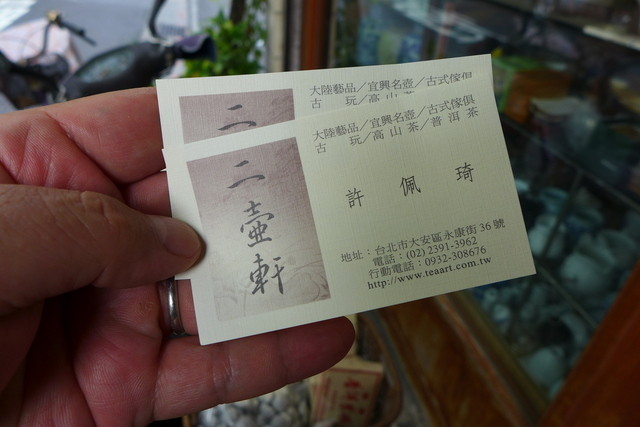 大陸藝品／宜興名壺／古式傢俱
古　　玩／高山茶
二
大陸藝品／宜興名壺／古式傢俱
古　　玩／高山茶／普洱茶
二壺軒
許佩琦
地址：台北市大安區永康街36號
電話：(02) 2391-3962
行動電話：0932-308676
http://www.teaart.com.tw